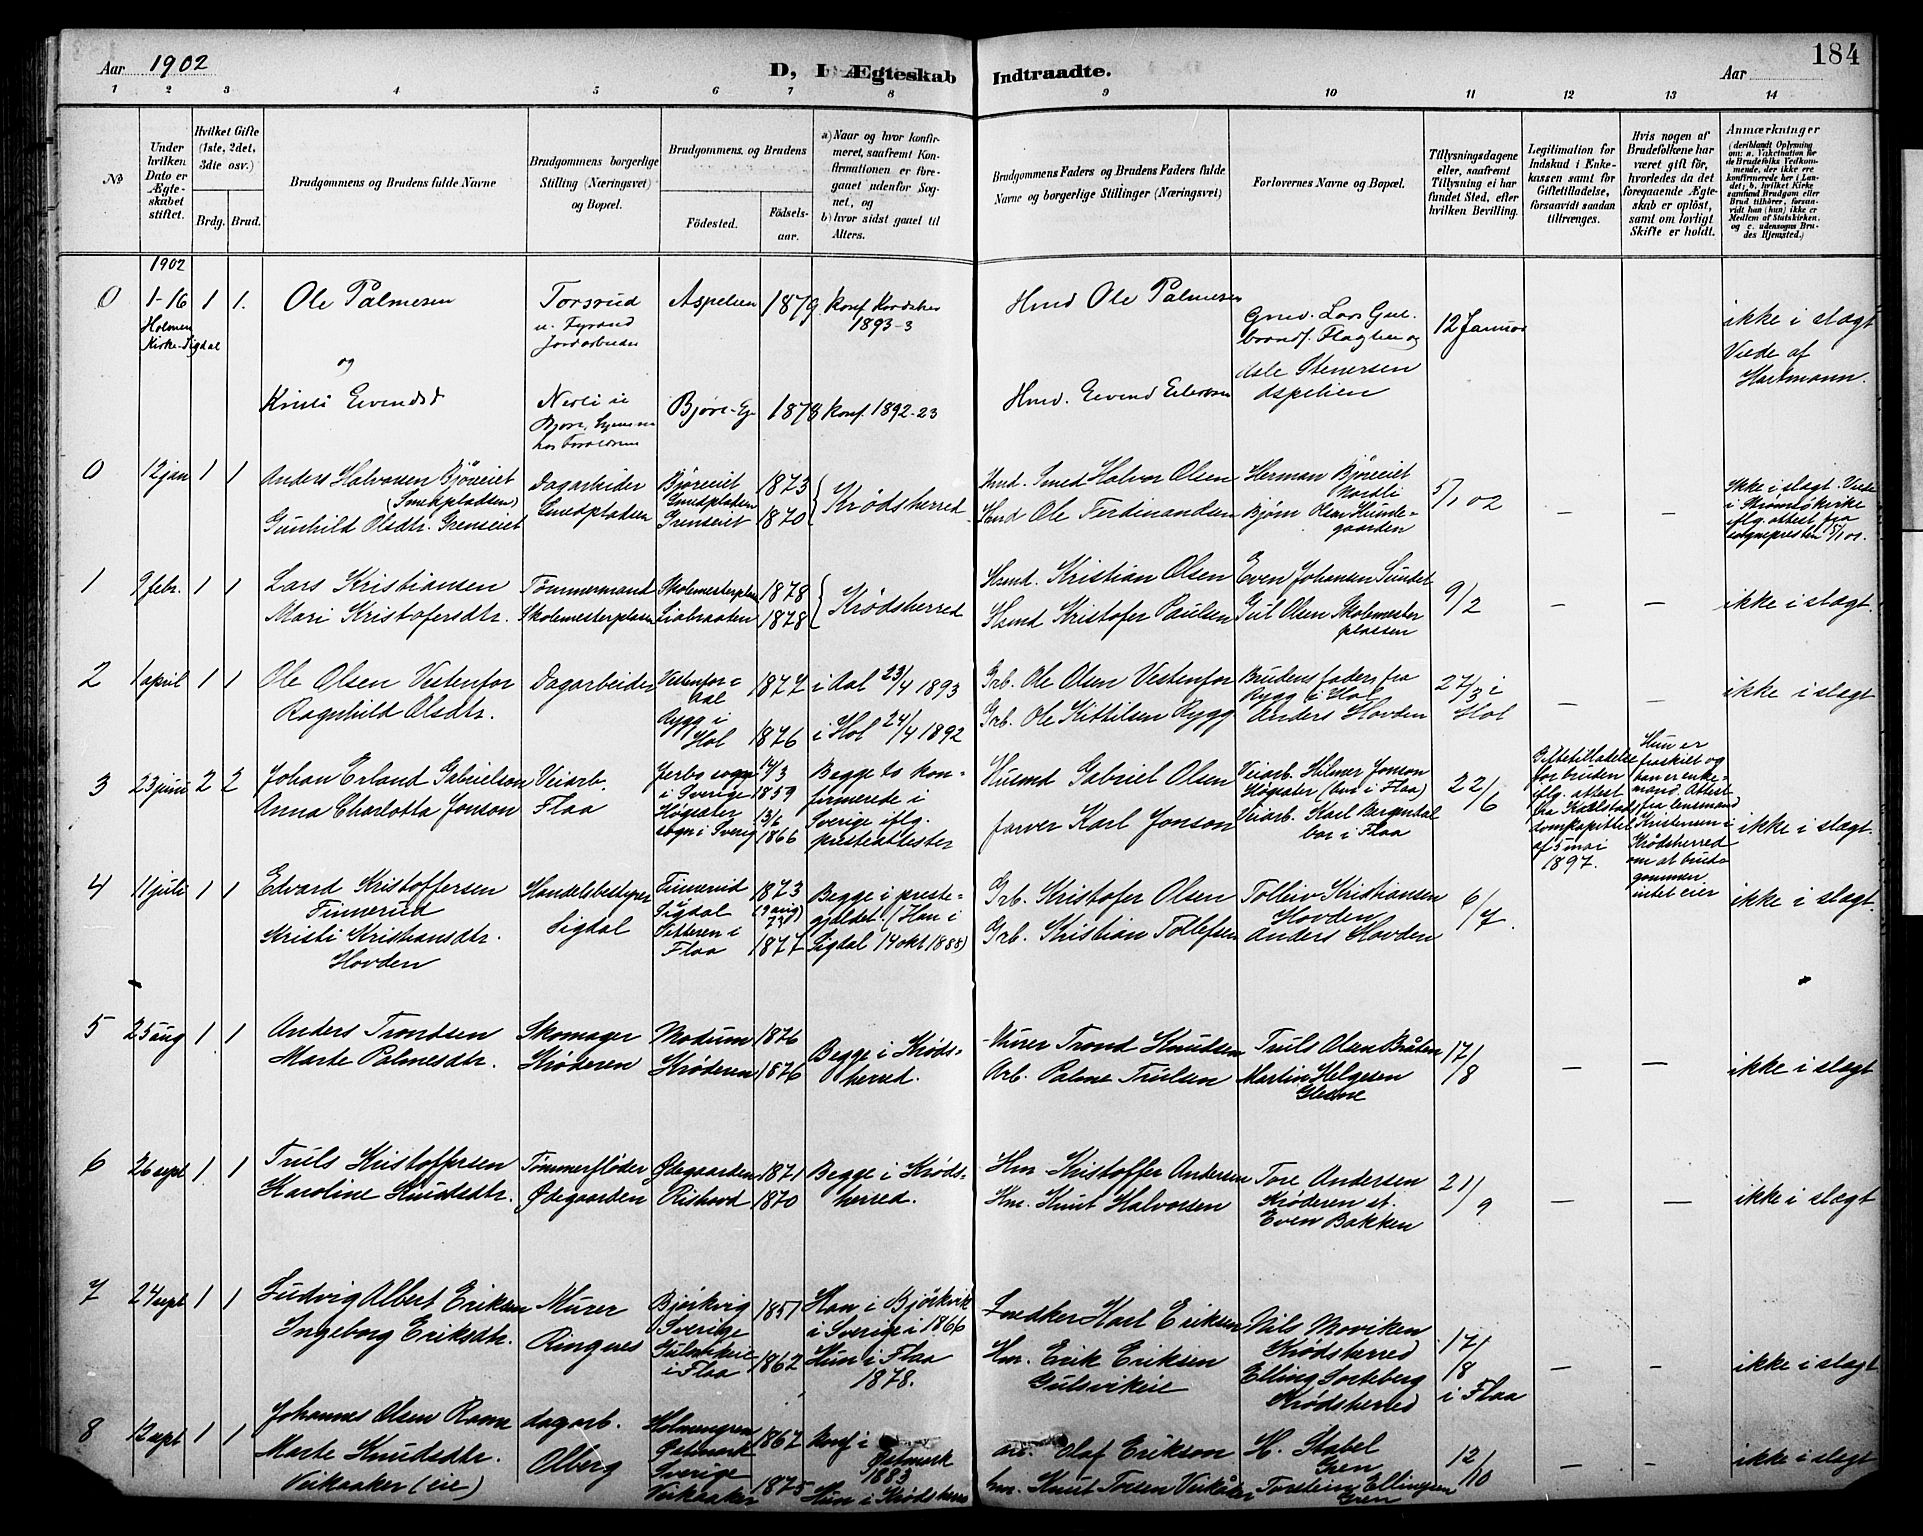 Aar 1902
D, I Ægteskab Indtraadte.
Aar
184
1 2 3 4 5 6 7 8 9 10 11 12 13 14
No
Under hvilken Dato er Ægteskabet stiftet.
Hvilket Gifte (1ste, 2det, 3dte osv.)
Brdg. Brud.
Brudgommens og Brudens fulde Navne
Brudgommens borgerlige Stilling (Næringsvei) og Bopæl.
Brudgommens og Brudens
Fødested.
Fødselsaar.
a) Naar og hvor konfirmeret, saafremt Konfirmationen er foregaaet udenfor Sognet, og
b) hvor sidst gaaet til Alters.
Brudgommens Faders og Brudens Faders fulde Navne og borgerlige Stillinger (Næringsvei)
Forlovernes Navne og Bopæl.
Tillysningsdagene eller, saafremt Tillysning ei har fundet Sted, efter hvilken Bevilling.
Legitimation for Indskud i Enkekassen samt for Giftetilladelse, forsaavidt saadan tiltrænges.
Hvis nogen af Brudefolkene har været gift før, hvorledes da det foregaaende Ægteskab er opløst, samt om lovligt Skifte er holdt.
Anmærkninger (deriblandt Oplysning om: a. Vakcination for de Brudefolks Vedkommende, der ikke ere konfirmerede her i Landet; b. hvilket Kirkesamfund Brudgom eller Brud tilhører, forsaavidt han (hun) ikke er Medlem af Statskirken. og c. udensogns Brudes Hjemsted.)
1902
0 1-16 1 1. Ole Palmesen Torsrud Aspelien 1879 konf. Krødsher 1893-3 Hmd Ole Palmesen 12 Januar ikke i slægt
Holmen Kirke-Sigdal
Jordarbeider
og
Viede af Hartmann.
Kristi Eivendsd Bjøre-Eje 1878 konf. 1892-23 Hmd. Eivend Asle Stenersen Aspelien
0 12 jan 1 1 Anders Halvorsen Bjøreeiet Dagarbeider Bjøreeiet 1873 Krødsherred Hmd. Smed Halvor Olsen Herman Bjøreeiet Nordli 5/1 02 — — Ikke i slægt. Viede i Strømsøkirke iflg. attest fra sognepresten
(Smedpladsen) Smedpladsen Smedpladsen
Gunhild Olsdtr. Grenseiet Grenseiet 1870 Hmd Ole Ferdinandsen Bjørn Olsen Kundegaarden
1 9 febr. 1 1 Lars Kristiansen Tømmermand Skolemesterplas 1878 Krødsherred Hsmd. Kristian Olsen Even Johansen Sundet 9/2 — — ikke i slægt.
Mari Kristofersdtr. Skolemesterplasen Liabraaten 1878 Hsmd Kristofer Paulsen Gul Olsen Skolemesterplassen
2 1 april 1 1 Ole Olsen Vestenfor Dagarbeider Vestenfor Aal 1877 i Aal 23/4 1893 Grb. Ole Olsen Vestenfor Brudens fader, fra Rygg i Hol 27/3 i Hol — — ikke i slægt
Ragnhild Olsdtr. Rygg i Hol 1876 i Hol 24/4 1892 Grb. Ole Kittilsen Rygg Anders Hovden
3 23 juni 2 2 Johan Erland Gabrielson Veiarb. Jerbo sogn i Sverige 1859 Begge to konfirmerede i Sverige iflg. presteattester Husmd Gabriel Olsen Veiarb. Hilmer Jonson Högsäter (bor i Flaa) 22/6 Giftetilladelse for bruden iflg. attest fra Karlstads domkapittel af 5 mai 1897. Hun er fraskilt og han er enkemand. Attest fra lensmand Kristensen i Krødsherred om at brudgommen intet eier ikke i slægt.
Anna Charlotta Jonson Flaa Högsäter sogn i Sverig 13/6 1866 farver Karl Jonson Veiarb. Karl Bergendal bor i Flaa
4 11 juli 1 1 Edvard Kristoffersen Finnerud Handelsbestyrer Finnerud Sigdal 1873 Begge i prestegjældet. (Han i Sigdal 14 okt 1888) Grb. Kristofer Olsen Tolleiv Kristiansen Hovden 6/7. ikke i slægt.
Kristi Kristiansdtr. Hovden Sigdal Setteren i Flaa 1877 Grb. Kristian Tollefsen Anders Hovden
5 25 aug 1 1 Anders Trondsen Skomager Modum 1876 Begge i Krødsherred. Murer Trond Knudsen Truls Olsen Bråten 17/8 — — ikke i slægt
Marte Palmesdtr. Krøderen Krøderen 1876 Arb. Palme Trulsen Martin Helgesen Glesne
6 26 sept 1 1 Truls Kristoffersen Tømmerfløder Ødegaarden 1871 Begge i Krødsherred. Hm. Kristoffer Andersen Tore Andersen Krøderen st. 21/9 — — ikke i slægt
Karoline Knudsdtr. Ødegaarden Rishovd 1870 Hm. Knut Halvorsen Even Bakken
7 24 sept 1 1 Ludvig Albert Eriksen Murer Björkvig Sverige 1851 Han i Björkvik i Sverige i 1866 Snedker Karl Eriksen Nils Moviken Krødsherred 17/8 i Flaa — — ikke i slægt
Ingeborg Eriksdtr. Ringnes Gulsvikeie i Flaa 1862 Hun i Flaa 1878. Hm. Erik Eriksen Gulsvikeie Elling Sorteberg Krødsherred
8 12 sept 1 1 Johannes Olsen dagarb. Östmark Sverige 1867 konf i Östmark 1883 Olaf Erikson H. Stabel Gren 12/10 — — ikke i slægt
Marte Knudsdtr. Veikaaker (eie) Olberg Veikaaker 1875 Hun i Krødsherr hm. Knut Torsen Veikåker Torstein Ellingsen Gren